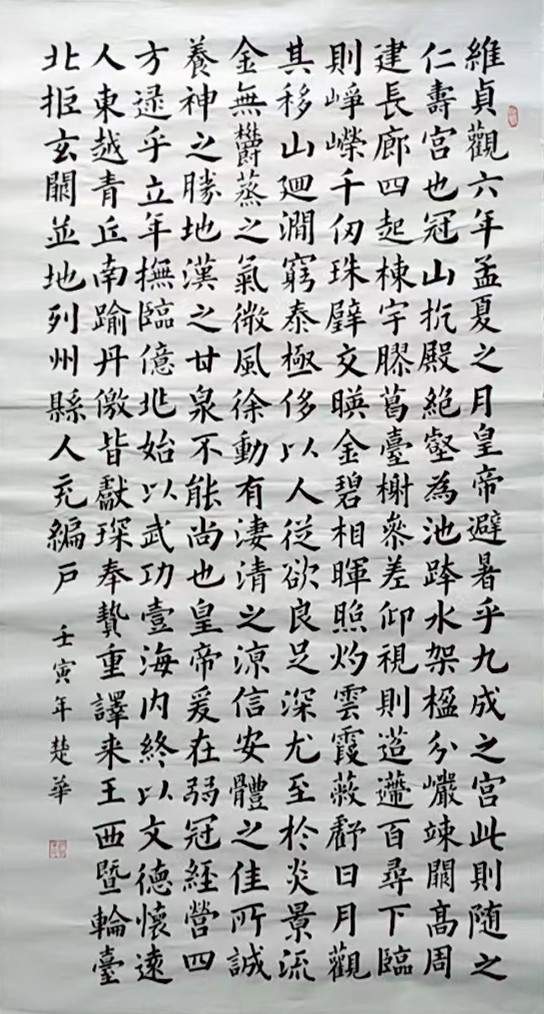 維貞觀六年孟夏之月皇帝避暑乎九成之宮此則随之
仁壽宮也冠山抗殿絶壑為池跨水架楹分巗竦闕高周
建長廊四起棟宇膠葛臺榭參差仰視則迢遰百尋下臨
則崢嶸千仞珠璧交暎金碧相暉照灼雲霞蔽虧日月觀
其移山廻澗窮泰極侈以人從欲良足深尤至於炎景流
金無欝蒸之氣微風徐動有淒清之涼信安體之佳所誠
養神之勝地漢之甘泉不能尚也皇帝爰在弱冠経營四
方逮乎立年撫臨億兆始以武功壹海内終以文德懷遠
人東越青丘南踰丹儌皆獻琛奉贄重譯来王西暨輪臺
北拒玄闕並地列州縣人充編戶
壬寅年楚華